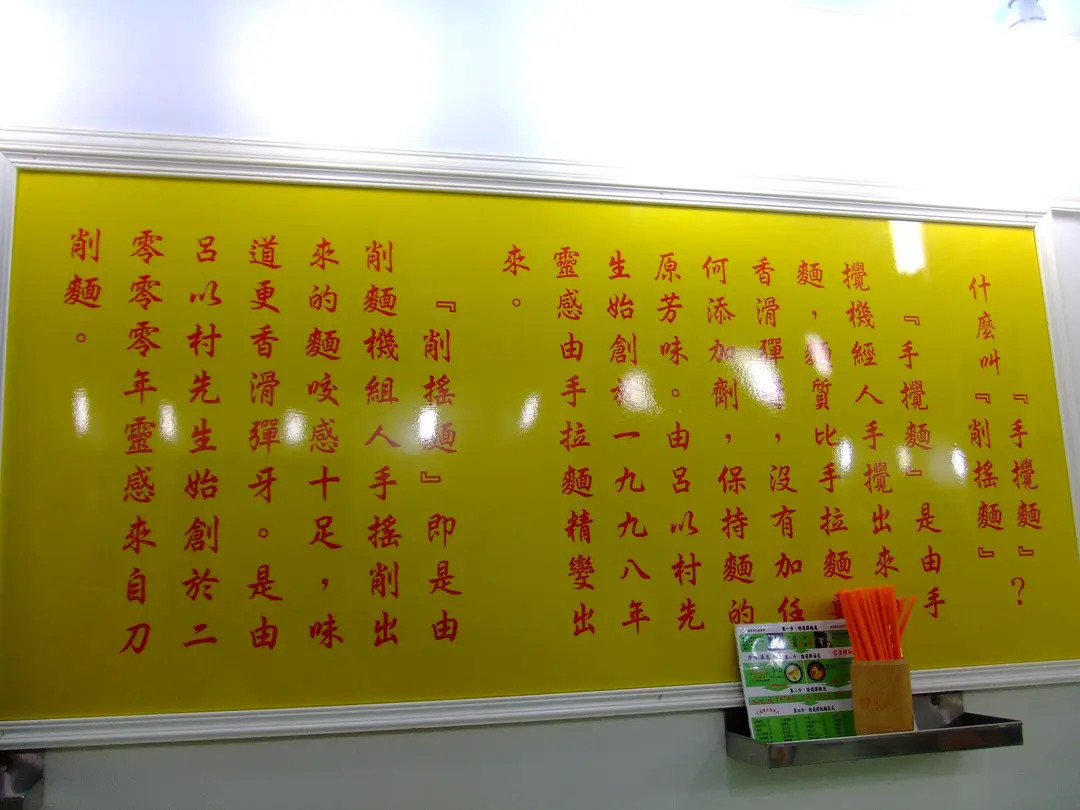 『手攪麵』?
什麼叫『削搖麵』
『手攪麵』是由手
攪機經人手攪出來
麵，麵質比手拉麵
香滑彈，沒有加任
何添加劑，保持麵的
原芳味。由呂以村先
生始創於一九九八年
靈感由手拉麵精變出
來。
『削搖麵』即是由
削麵機組人手搖削出
來的麵咬感十足，味
道更香滑彈牙。是由
呂以村先生始創於二
零零零年靈感來自刀
削麵。